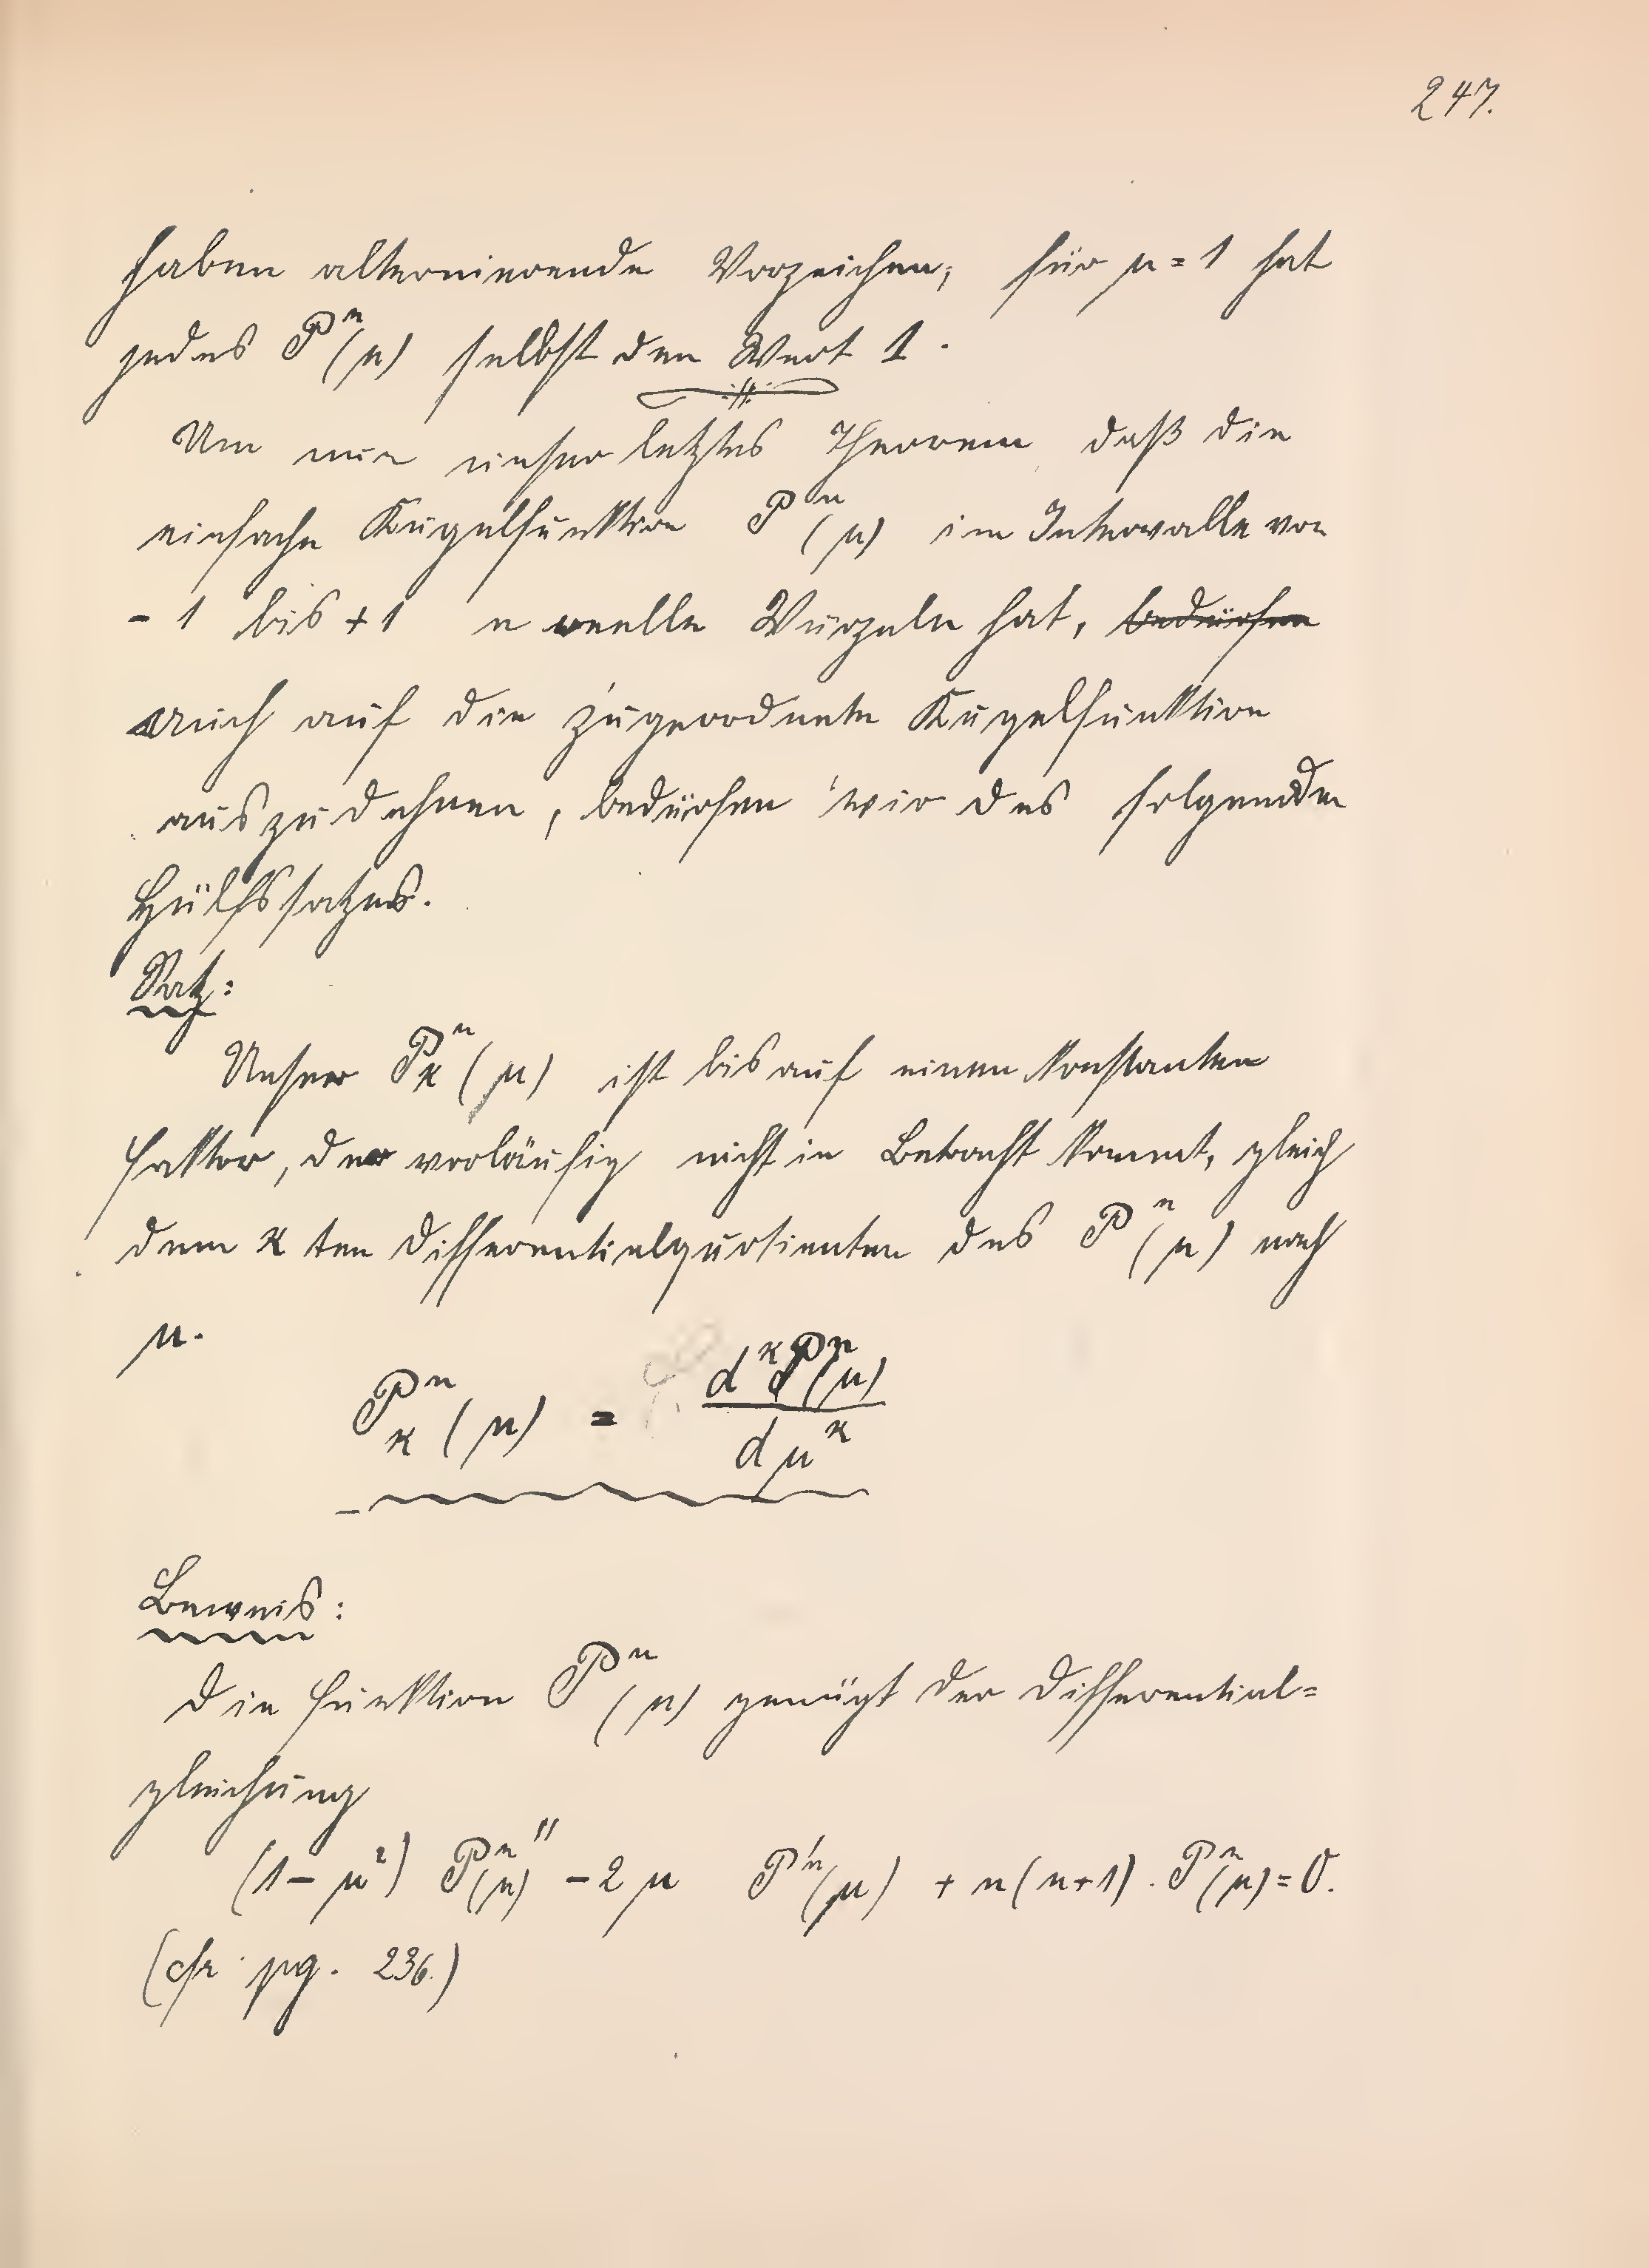 247.
haben alternierende Vorzeichen; für μ = 1 hat
jedes P^n(μ) selbst den Wert 1.
Um nun unser letztes Theorem, daß die
einfache Kugelfunktion P^n(μ) im Intervalle von
- 1 bis + 1 n reelle Wurzeln hat, ~~bedürfen~~
auch auf die zugeordnete Kugelfunktion
auszudehnen, bedürfen wir des folgenden
Hülfssatzes.
Satz:
Unser P^n_κ(μ) ist bis auf einen konstanten
Faktor, der vorläufig nicht in Betracht kommt, gleich
dem κ ten Differentialquotienten des P^n(μ) nach
μ.
P^n_κ(μ) = d^κ P^n(μ) / dμ^κ
Beweis:
Die Funktion P^n(μ) genügt der Differential=
gleichung
(1 - μ²) P^n''(μ) - 2 μ P'^n(μ) + n(n+1) . P^n(μ) = 0.
(cfr. pg. 236.)